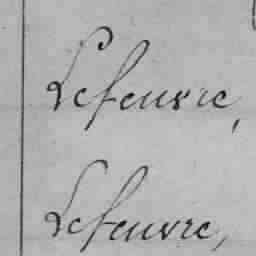 Lefeuvre,
Lefeuvre,